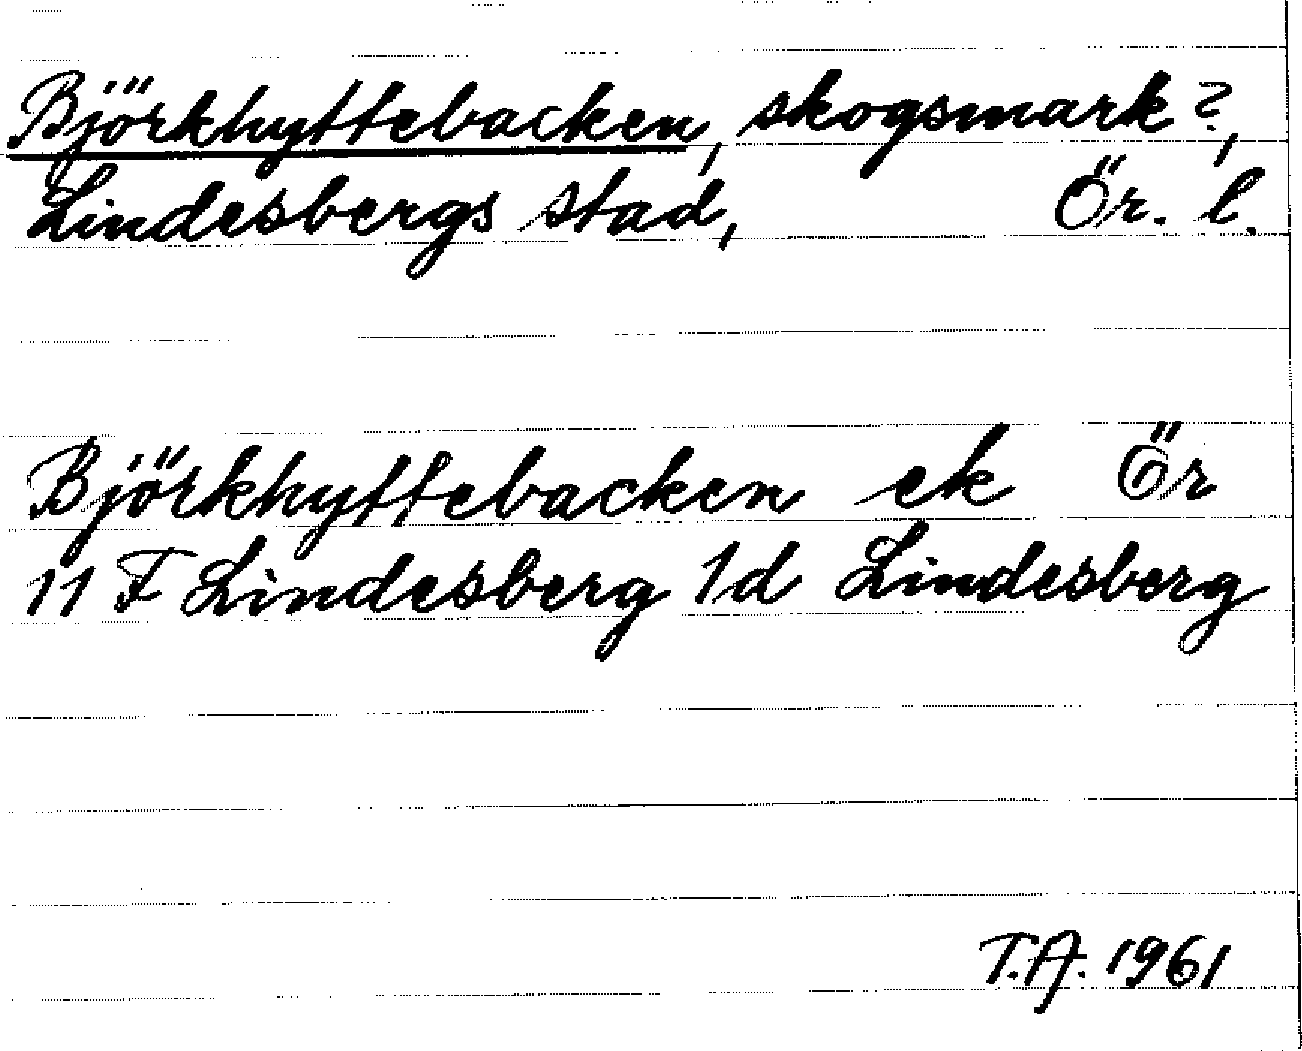 Björkhyttebacken, skogsmark?,
Lindesbergs stad, Ör. l.
Björkhyttebacken ek Ör
11 F Lindesberg 1d Lindesberg
T.A. 1961